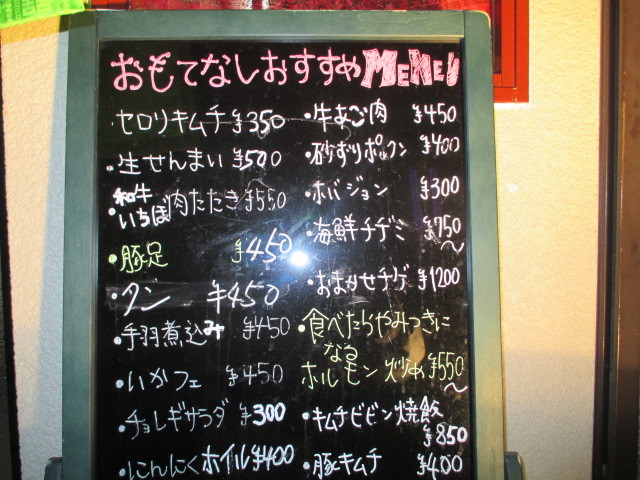 おもてなしおすすめMENEU
・セロリキムチ ¥350
・生せんまい ¥500
・和牛
いちぼ肉たたき ¥550
・豚足 ¥450
・タン ¥450
・手羽煮込み ¥450
・いかフェ ¥450
・チョレギサラダ ¥300
・にんにくホイル ¥400
・牛あご肉 ¥450
・砂ずりポックン ¥400
・ホバジョン ¥300
・海鮮チヂミ ¥750〜
・おまかせチゲ ¥1200
・食べたらやみつきに
なる
ホルモン炒め ¥550〜
・キムチビビン焼飯
¥850
・豚キムチ ¥400